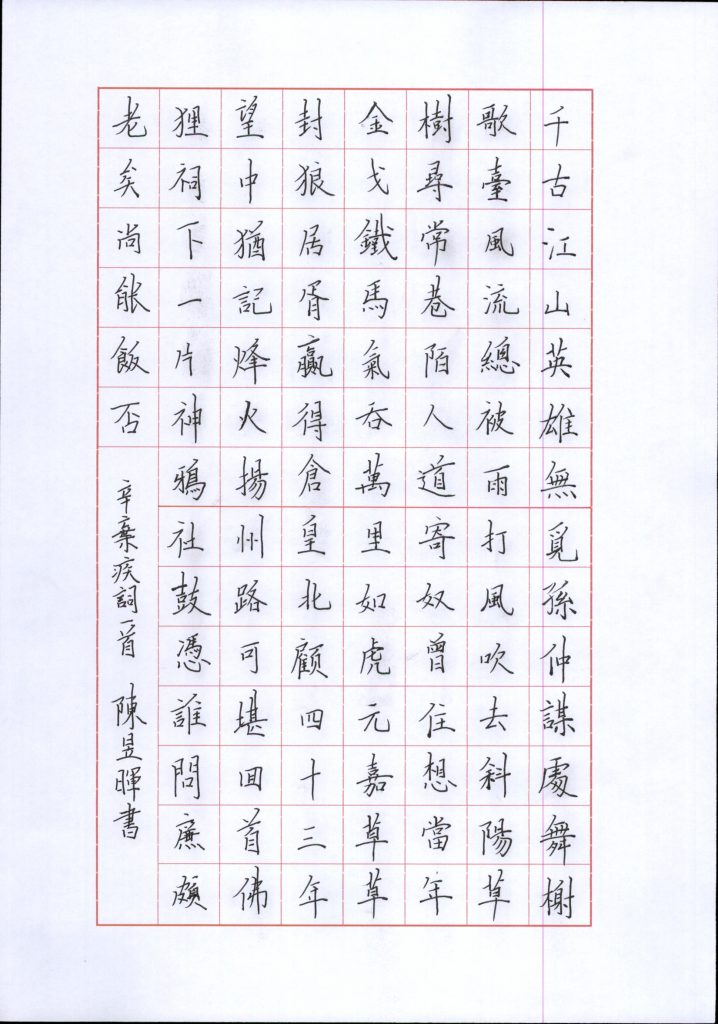 千古江山英雄無覓孫仲謀處舞榭
歌臺風流總被雨打風吹去斜陽草
樹尋常巷陌人道寄奴曾住想當年
金戈鐵馬氣吞萬里如虎元嘉草草
封狼居胥贏得倉皇北顧四十三年
望中猶記烽火揚州路可堪回首佛
狸祠下一片神鴉社鼓憑誰問廉頗
老矣尚能飯否
辛棄疾詞一首 陳昱暉書